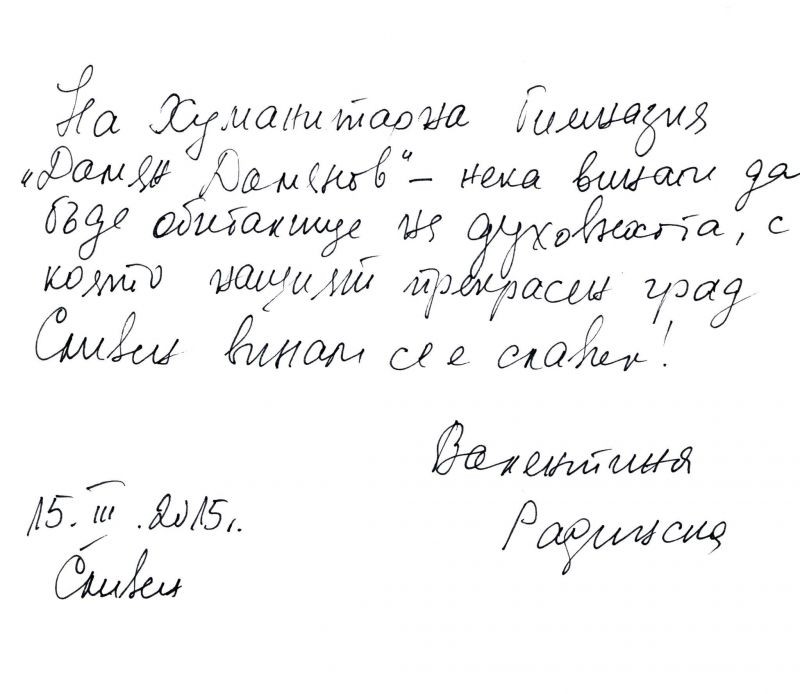 На Хуманитарна Гимназия
„Дамян Дамянов“ – нека винаги да
бъде обиталище на духовността, с
която нашият прекрасен град
Сливен винаги се е славел!
Валентина
Радинска
15. III. 2015г.
Сливен